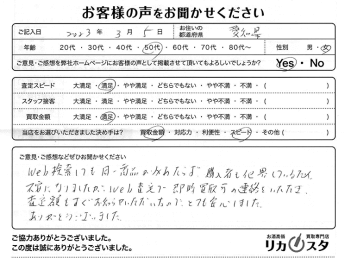 お客様の声をお聞かせください
ご記入日 2023年 3月 5日 お住いの都道府県 愛知県
年齢 20代・30代・40代・50代・60代・70代・80代〜 性別 男・女
ご意見・ご感想を弊社ホームページにお客様の声として掲載させて頂いてもよろしいでしょうか? Yes・No
査定スピード 大満足・満足・やや満足・どちらでもない・やや不満・不満・( )
スタッフ接客 大満足・満足・やや満足・どちらでもない・やや不満・不満・( )
買取金額 大満足・満足・やや満足・どちらでもない・やや不満・不満・( )
当店をお選びいただきました決め手は? 買取金額・対応力・利便性・スピード・その他( )
ご意見・ご感想などぜひお聞かせください
Web検索しても同一商品がみあたらず 購入者も他界しているため
大変になりましたが Web査定で即時買取可の連絡をいただき
査定額もすぐお知らせいただいたのでとても安心しました。
ありがとうございました。
ご協力ありがとうございました。
この度は誠にありがとうございました。
お酒高価 買取専門店
リカスタ